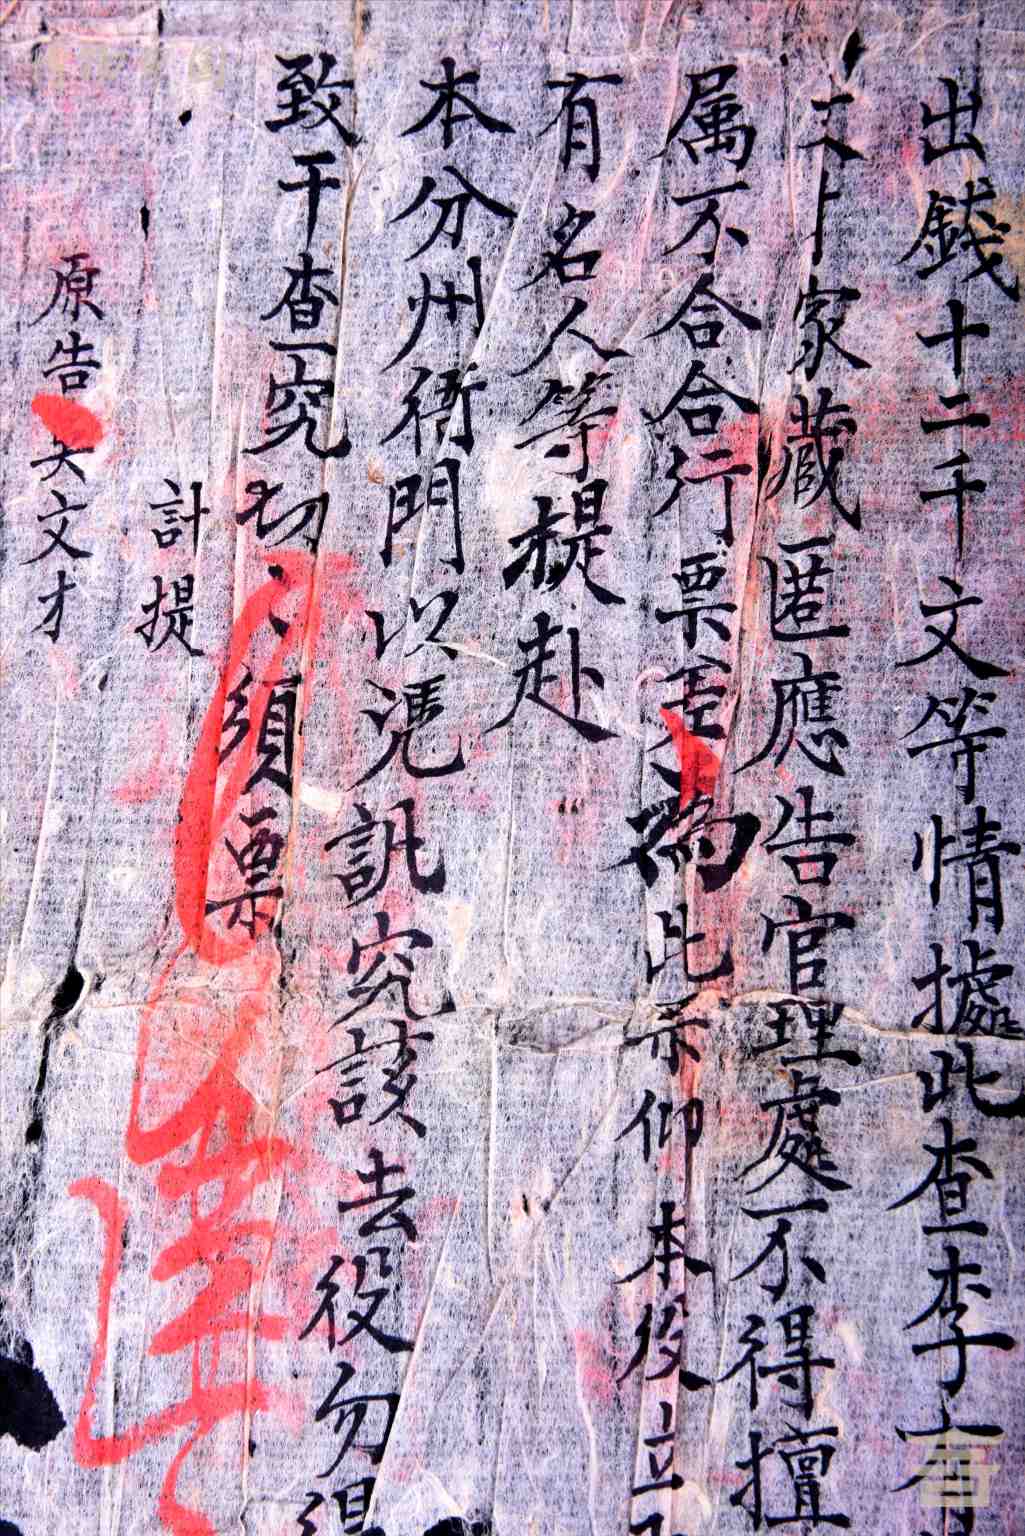 出錢十二千文等情據此查李
家藏匿應告官理處不得擅
属不合合行票差為此票仰本役立
有名人等提赴
本分州衙門以凭訊究該去役勿得
致干查究切〻須票
計提
原告 文才